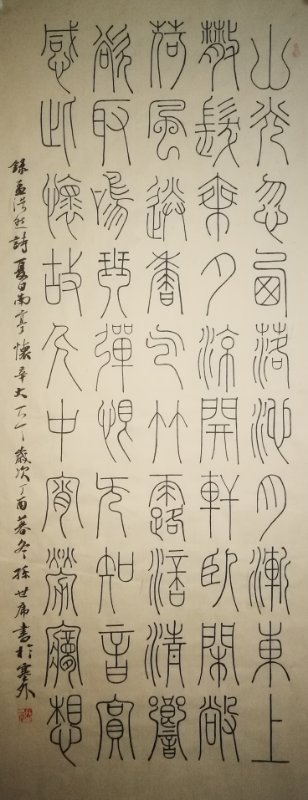 山光忽西落池月漸東上
散髮乘夕涼開軒臥閑敞
荷風送香气竹露滴清響
欲取鳴琴彈恨无知音賞
感此懷故人中宵勞夢想
錄孟浩然詩夏日南亭懷辛大歲次丁酉暮冬孫世書於塞外